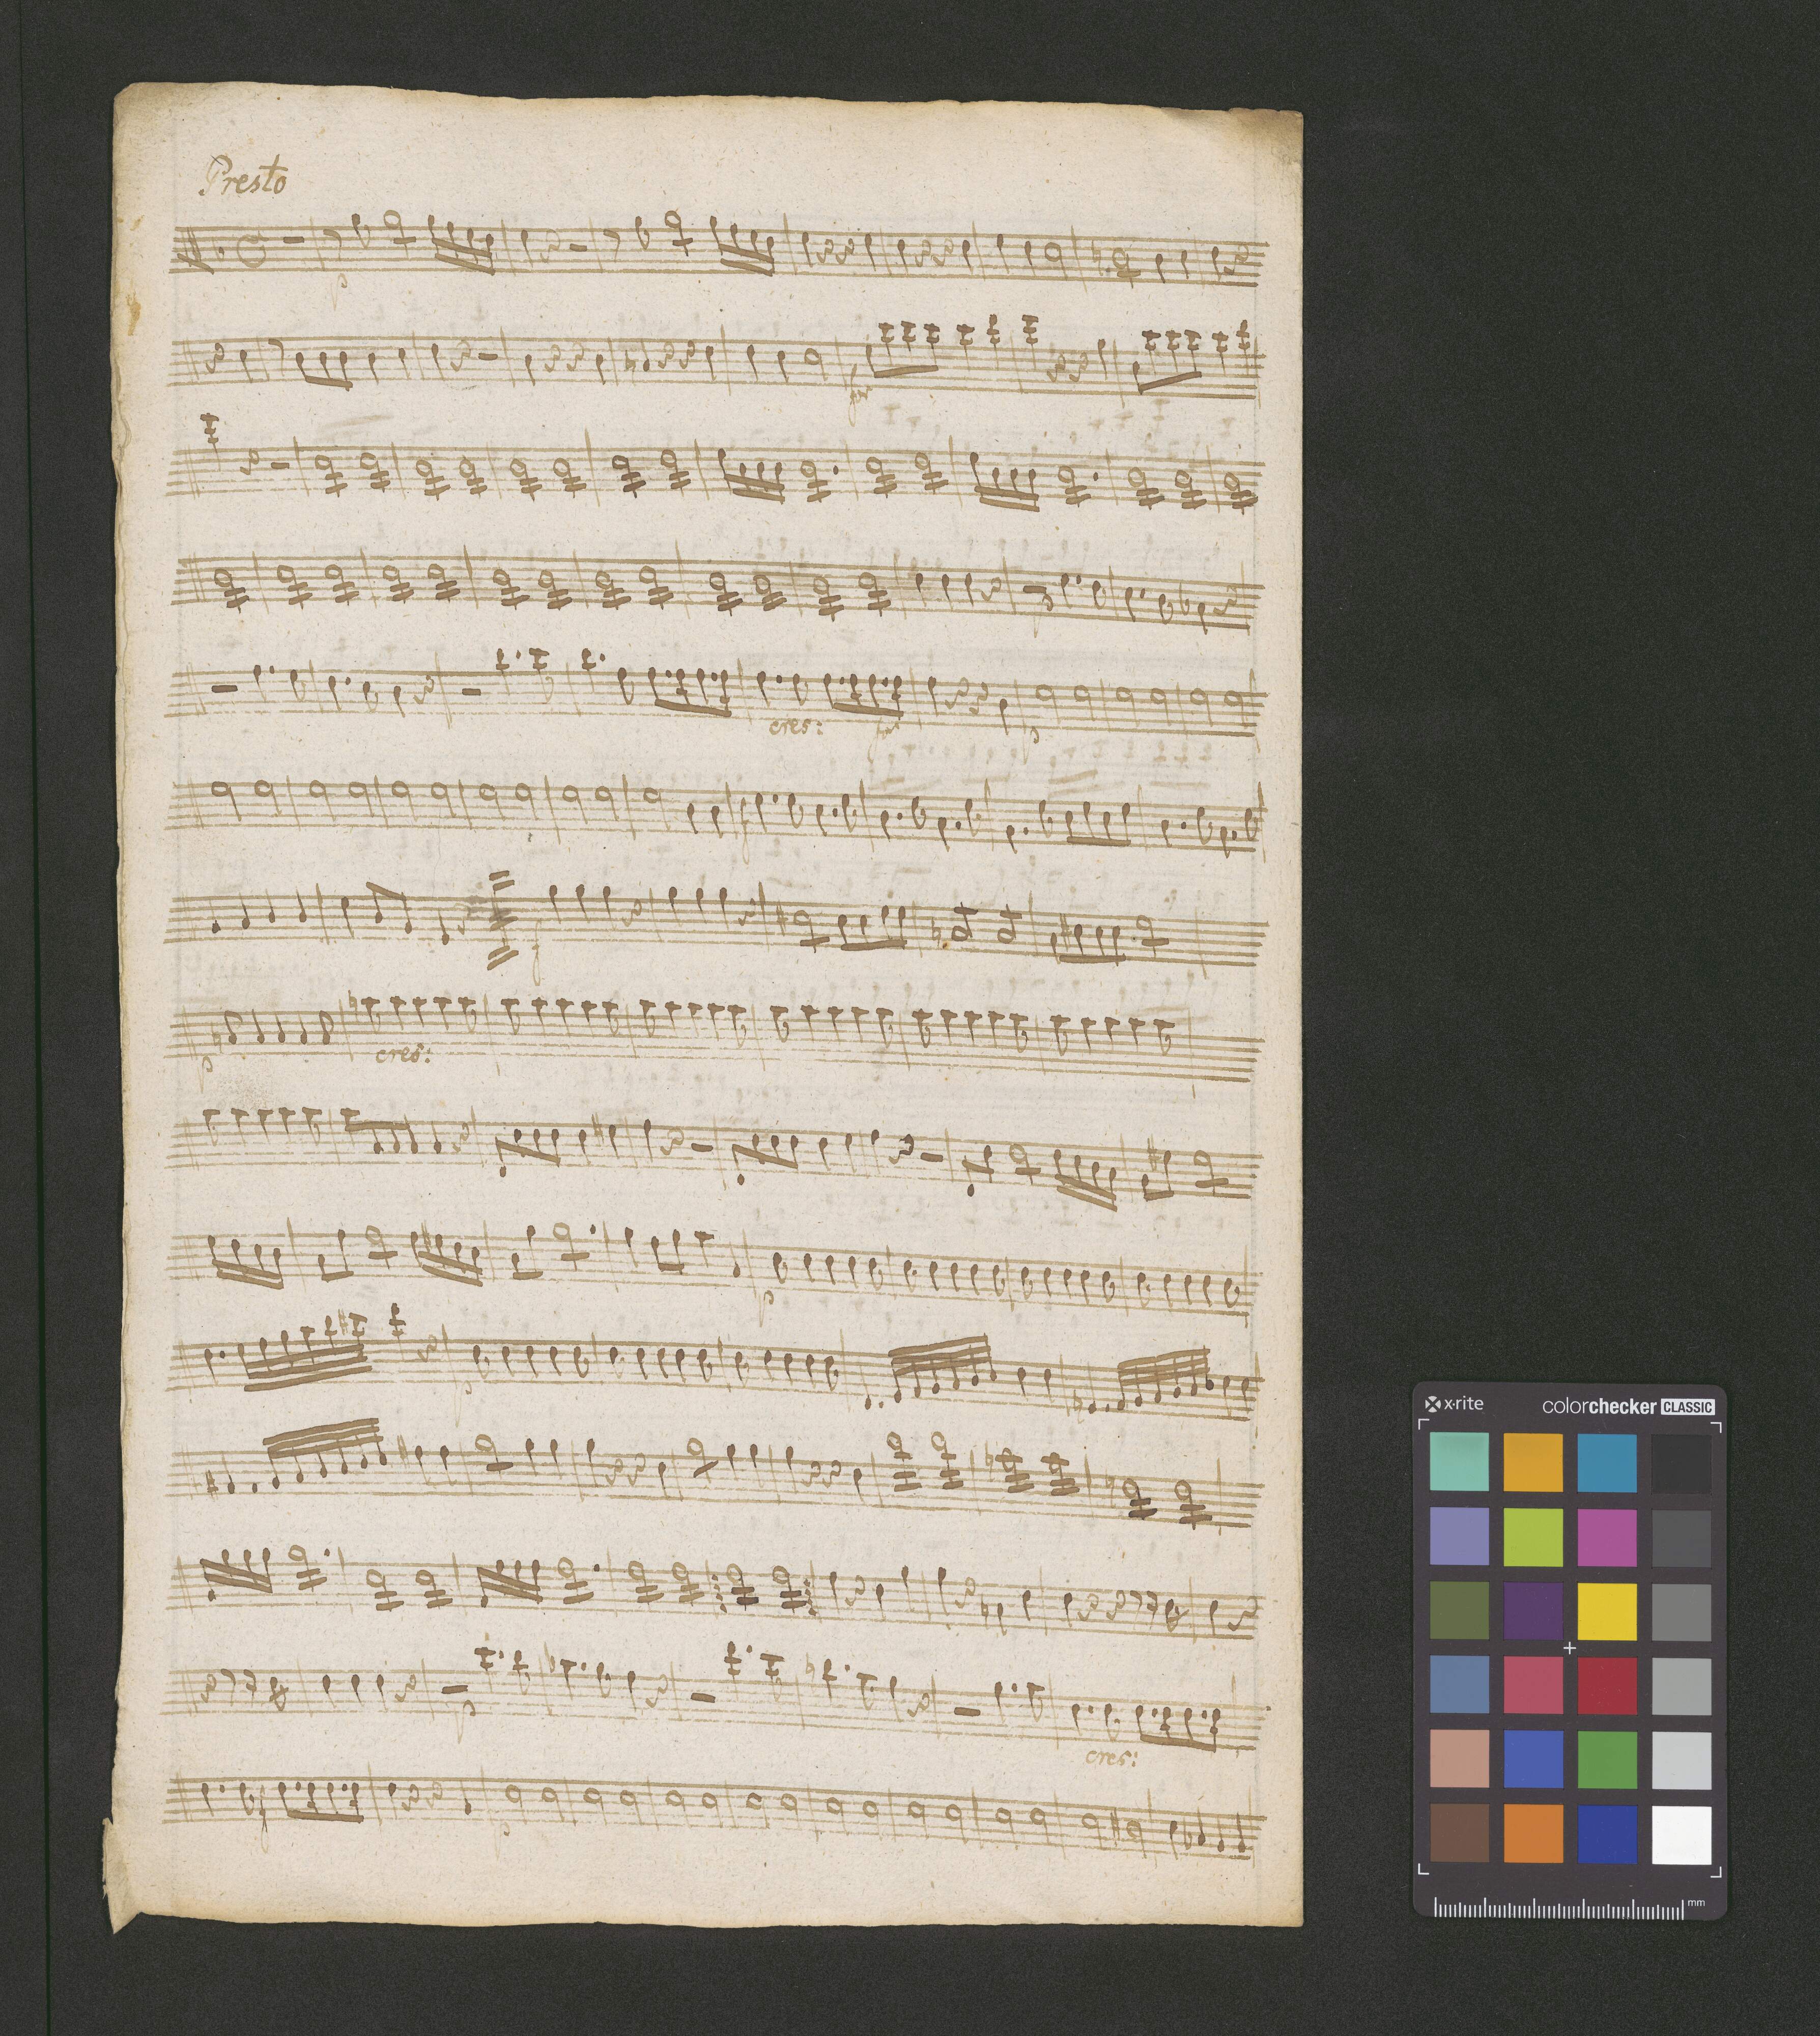 Presto
p
for
p
cres: for p
f
f
p cres:
p
p
p
cres:
f p
x·rite colorchecker CLASSIC
mm